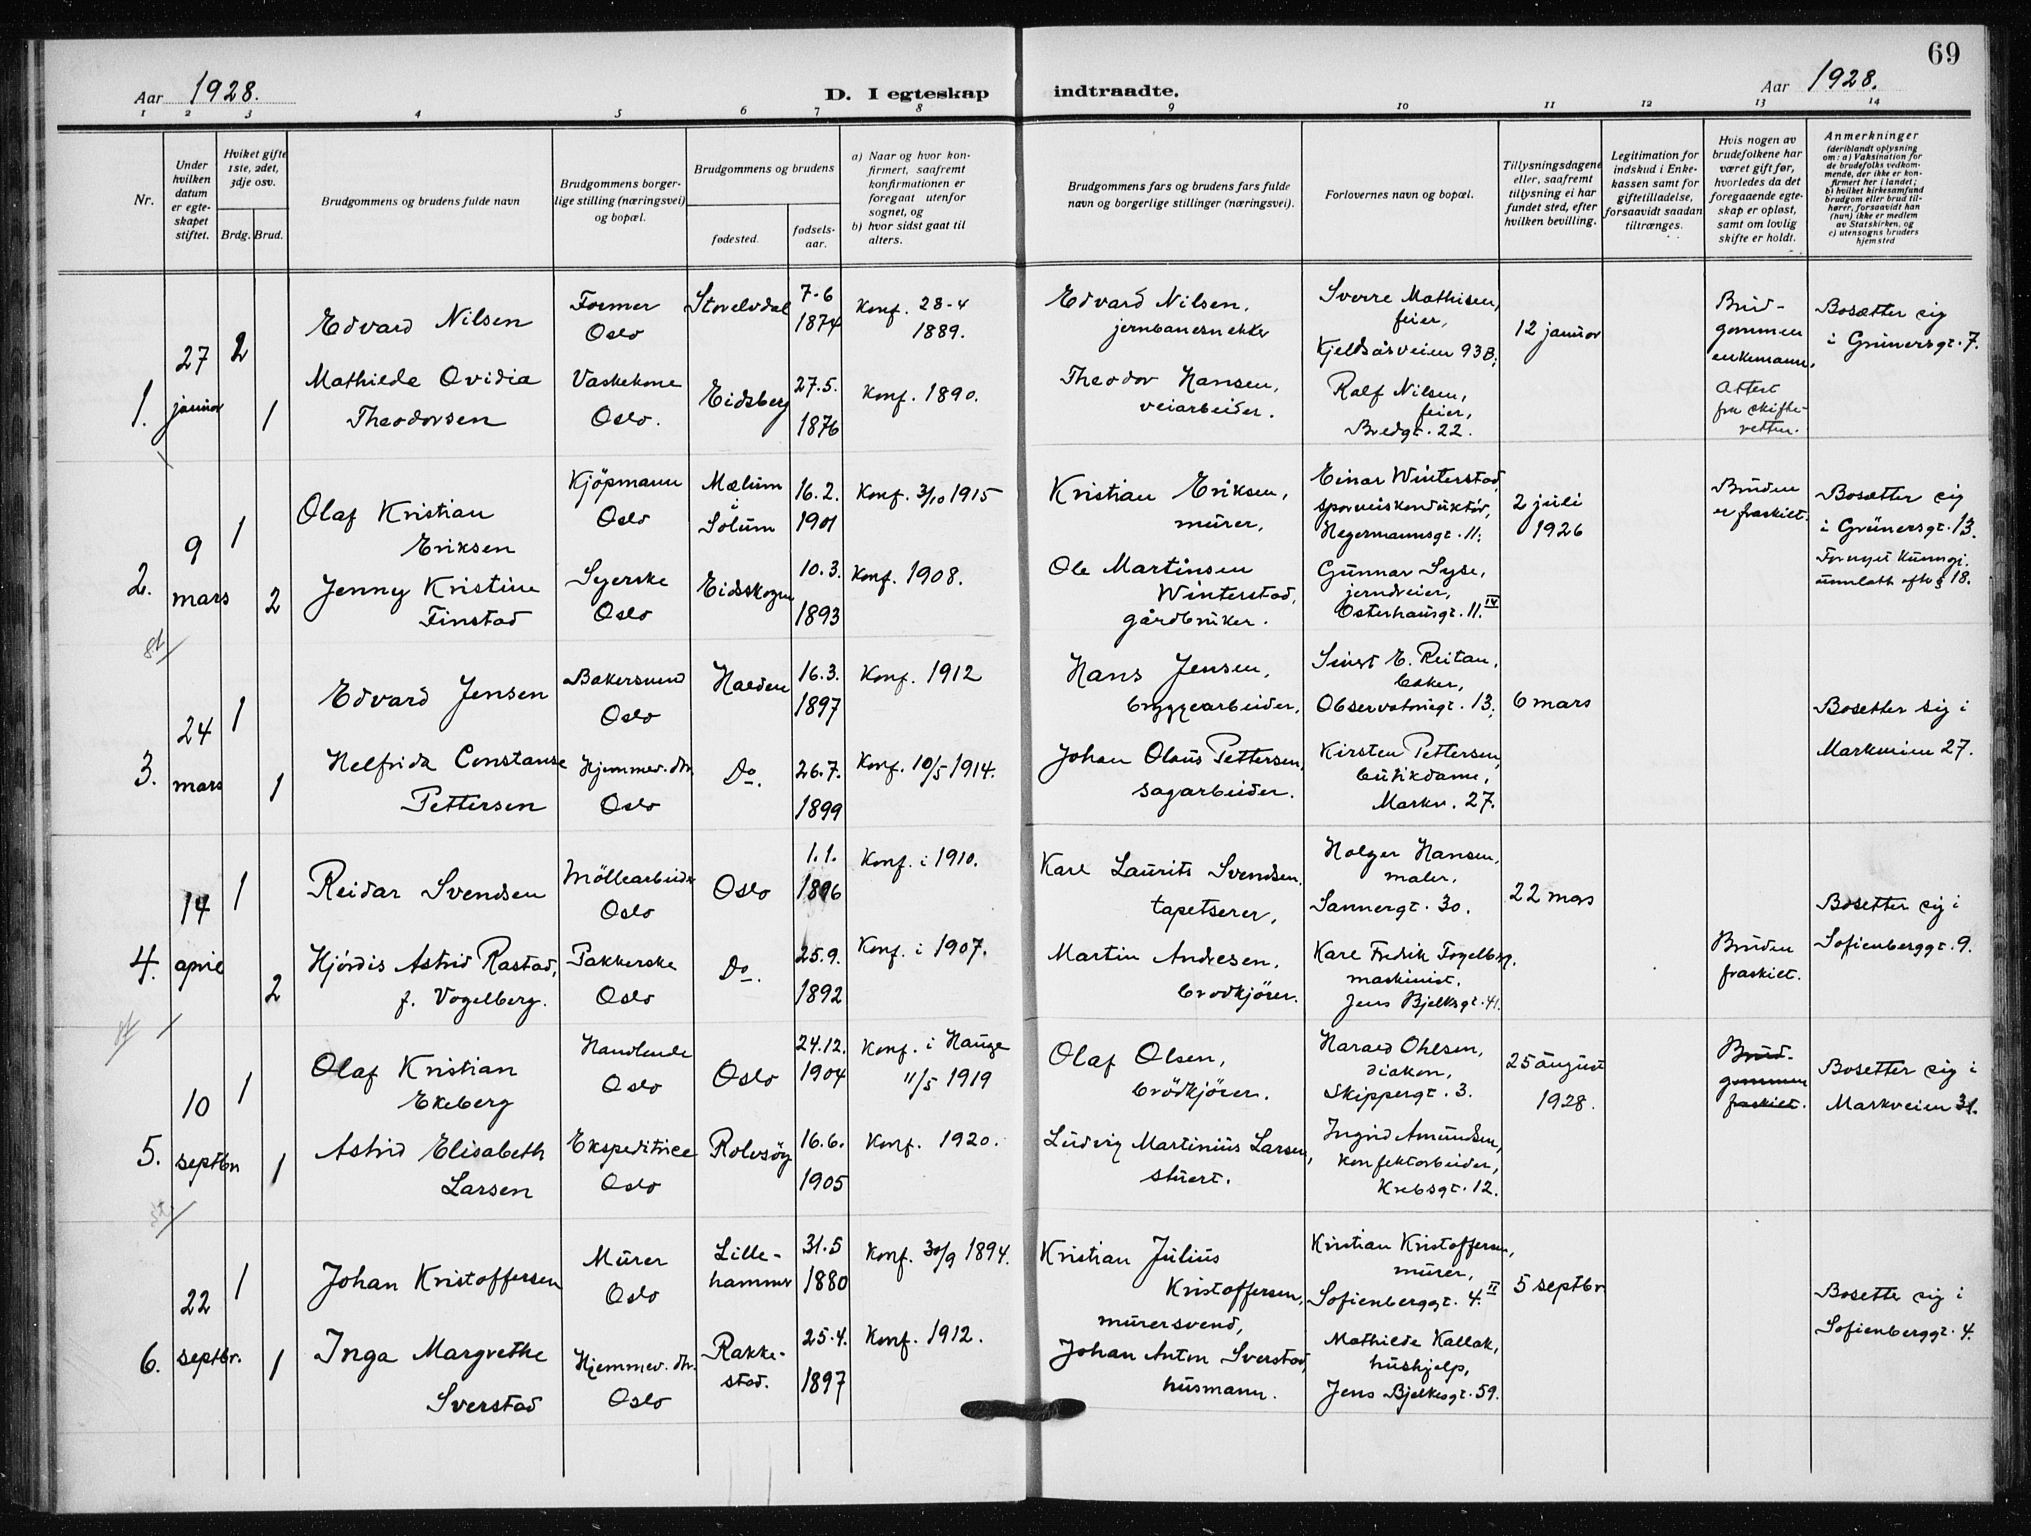 69
Aar 1928.
D. I egteskap indtraadte.
Aar 1928.
1 2 3 4 5 6 7 8 9 10 11 12 13 14
Nr.
Under hvilken datum er egteskapet stiftet.
Hvilket gifte 1ste, 2det, 3dje osv.
Brdg. Brud.
Brudgommens og brudens fulde navn
Brudgommens borgerlige stilling (næringsvei) og bopæl.
Brudgommens og brudens
fødested.
fødselsaar.
a) Naar og hvor konfirmert, saafremt konfirmationen er foregaat utenfor sognet, og
b) hvor sidst gaat til alters.
Brudgommens fars og brudens fars fulde navn og borgerlige stillinger (næringsvei).
Forlovernes navn og bopæl.
Tillysningsdagene eller, saafremt tillysning ei har fundet sted, efter hvilken bevilling.
Legitimation for indskud i Enkekassen samt for giftetilladelse, forsaavidt saadan tiltrænges.
Hvis nogen av brudefolkene har været gift før, hvorledes da det foregaaende egteskap er opløst, samt om lovlig skifte er holdt.
Anmerkninger (deriblandt oplysning om: a) Vaksination for de brudefolks vedkommende, der ikke er konfirmert her i landet; b) hvilket kirkesamfund brudgom eller brud tilhører, forsaavidt han (hun) ikke er medlem av Statskirken, og c) utensogns bruders hjemsted
1.
27 januar
2
1
Edvard Nilsen
Former
Oslo
Storelvdal
7-6
1874
Konf. 28-4
1889.
Edvard Nilsen,
jernbanesnekker
Sverre Mathisen,
feier,
Kjelsåsveien 93B;
12 januar
Brudgommen
enkemann.
Attest
fra skifteretten.
Bosætter sig
i Grünersgt. 7.
Mathilde Ovidia
Theodorsen
Vaskekone
Oslo.
Eidsberg
27.5.
1876
Konf. 1890.
Theodor Hansen,
veiarbeider.
Ralf Nilsen,
feier,
Bredgt. 22.
2.
9
mars
1
2
Olaf Kristian
Eriksen
Kjöpmann
Oslo
Mælum
i
Solum
16.2.
1901
Konf. 3/10 1915
Kristian Eriksen,
murer,
Einar Winterstad,
sporveiskonduktör,
Hegermannsgt. 11;
2 juli
1926
Bruden
er fraskilt.
Bosætter sig
i Grünersgt. 13.
Jenny Kristine
Finstad
Syerske
Oslo
Eidskogen
10.3.
1893
Konf. 1908.
Ole Martinsen
Winterstad,
gårdbruker.
Gunnar Syse,
Osterhausgt. 11. IV
3.
24
mars
1
1
Edvard Jensen
Bakersvend
Oslo
Halden
16.3.
1897
Konf. 1912
Hans Jensen,
byggearbeider,
E. Reitan,
baker,
Observatoriegt. 13;
6 mars
Bosetter sig i
Markveien 27.
Helfrida Constanse
Pettersen
Hjemmev. dtr.
Oslo
Do.
26.7.
1899
Konf. 10/5 1914.
Johan Olaus Pettersen,
sagarbeider.
Kirsten Pettersen,
butikdame,
Markv. 27.
4.
14
april
1
2
Reidar Svendsen
Möllearbeider
Oslo
Oslo
1.1.
1896
Konf. i 1910.
Karl Laurits Svendsen,
tapetserer,
Holger Hansen,
maler,
Sannergt. 30.
22 mars
Bruden
fraskilt.
Bosetter sig i
Sofienberggt. 9.
Hjördis Astrid Rastad,
f. Vogelberg.
Pakkerske
Oslo
Do.
25.9.
1892
Konf. i 1907.
Martin Andresen,
brödkjörer.
Karl Fredrik Fogelberg,
maskinist,
Jens Bjelkesgt. 41.
5.
10
septbr
1
1
Olaf Kristian
Ekeberg
Handlende
Oslo
Oslo
24.12.
1904
Konf. i Hauge
11/5 1919
Olaf Olsen,
brödkjörer.
Harald Ohlsen,
diakon,
Skippergt. 3.
25 august
1928.
Brudgommen
fraskilt.
Bosetter sig i
Markveien 31.
Astrid Elisabeth
Larsen
Ekspeditrice
Oslo
Rolvsöy
16.6.
1905
Konf. 1920.
Ludvig Martinius Larsen,
stuert.
Ingrid Amundsen,
konfektarbeider,
Krebsgt. 12.
6.
22
septbr.
1
1
Johan Kristoffersen
Murer
Oslo
Lillehammer
31.5
1880
Konf. 30/9 1894.
Kristian Julius
Kristoffersen,
murersvend,
Kristian Kristoffersen,
murer,
Sofienberggt. 4. II
5 septbr
Bosetter sig i
Sofienberggt. 4.
Inga Margrethe
Sverstad
Hjemmev. dtr.
Oslo
Rakkestad.
25.4.
1897
Konf. 1912.
Johan Anton Sverstad,
husmann.
Mathilde Kallak,
hushjelp,
Jens Bjelkesgt. 59.